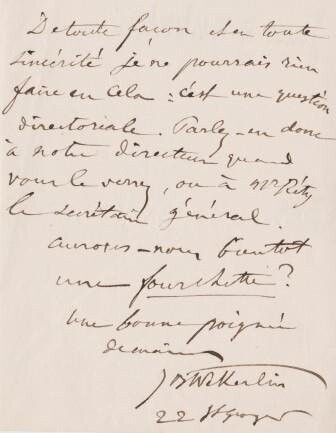 De toute façon et en toute
sincérité je ne pourrais rien
faire en cela : c'est une question
directoriale. Parlez-en donc
à notre directeur quand
vous le verrez, ou à Mr Réty
le secrétaire général.
aurons-nous bientôt
une fourchette ?
Une bonne poignée
de main
JBWekerlin
22 St George